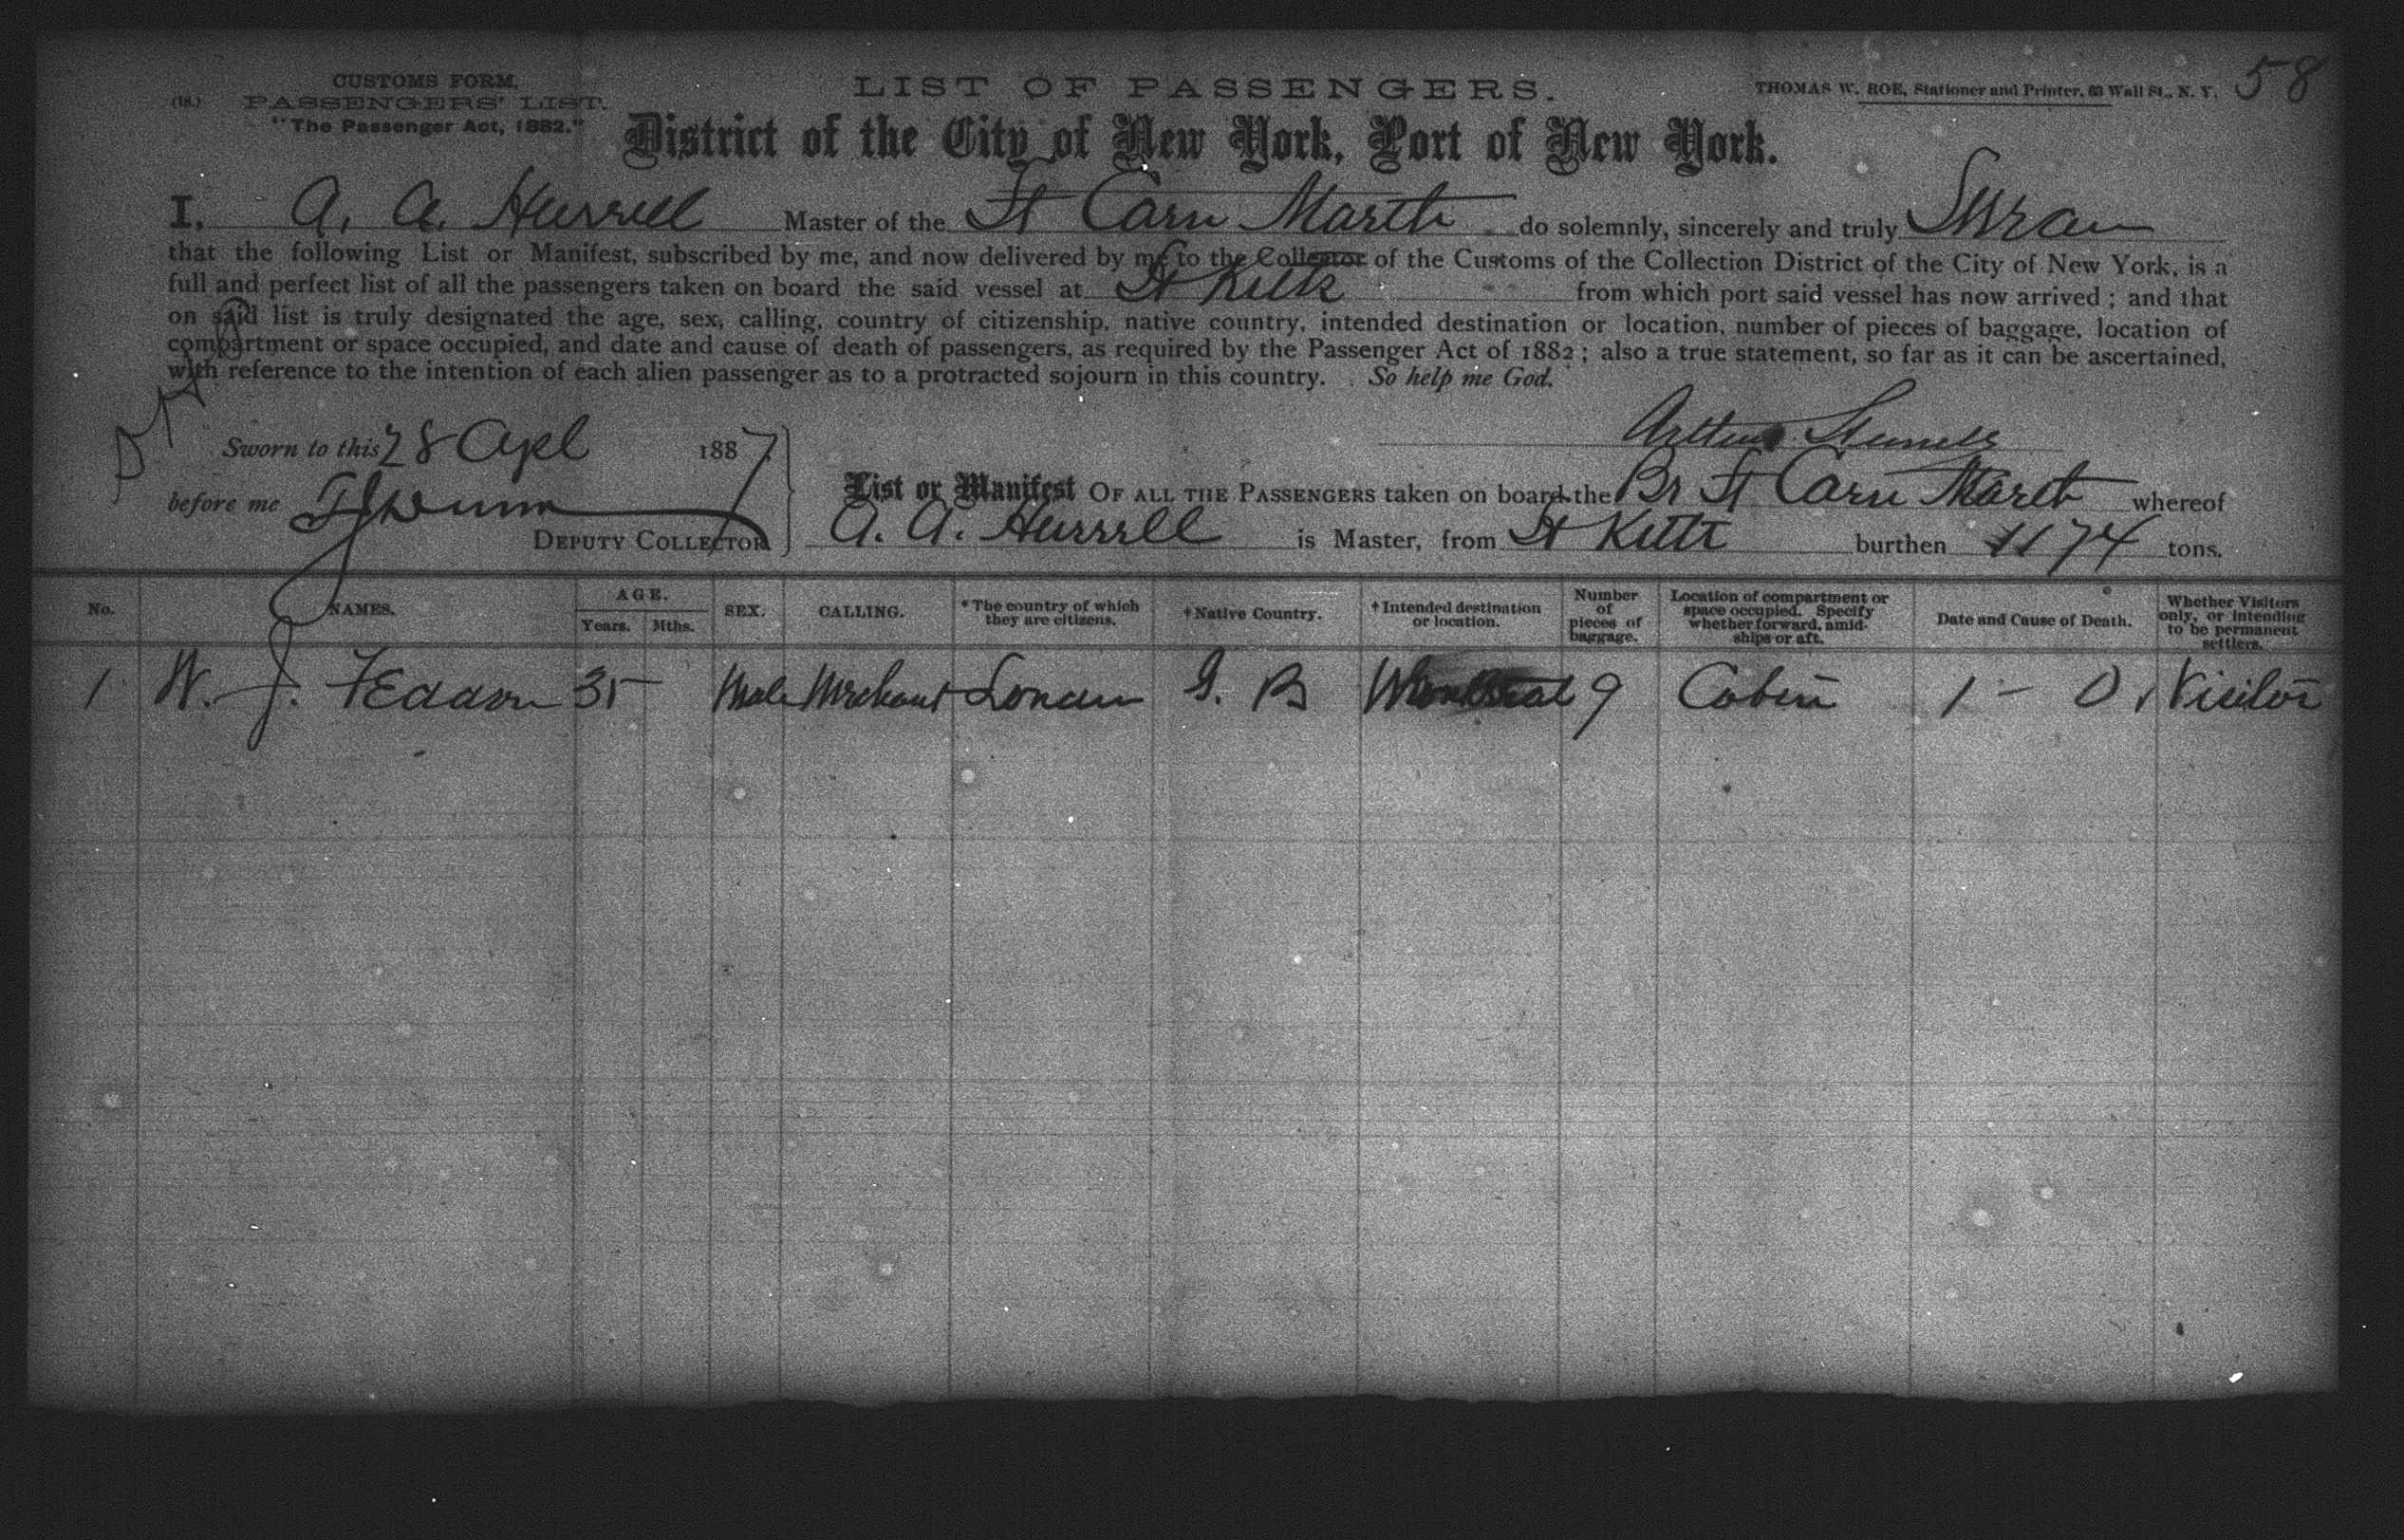 CUSTOMS FORM.
(18.) PASSENGERS' LIST.
"The Passenger Act, 1882."
LIST OF PASSENGERS.
THOMAS W. ROE, Stationer and Printer, 63 Wall St., N. Y. 58
District of the City of New York, Port of New York.
I, A. A. Hurrell Master of the St Carn Marth do solemnly, sincerely and truly Swear
that the following List or Manifest, subscribed by me, and now delivered by me to the Collector of the Customs of the Collection District of the City of New York, is a
full and perfect list of all the passengers taken on board the said vessel at St Kitts from which port said vessel has now arrived; and that
on said list is truly designated the age, sex, calling, country of citizenship, native country, intended destination or location, number of pieces of baggage, location of
compartment or space occupied, and date and cause of death of passengers, as required by the Passenger Act of 1882; also a true statement, so far as it can be ascertained,
with reference to the intention of each alien passenger as to a protracted sojourn in this country. So help me God.
Sworn to this 28 Apl 1887
before me
DEPUTY COLLECTOR
List or Manifest OF ALL THE PASSENGERS taken on board the Br St Carn Marth whereof
A. A. Hurrell is Master, from St Kitts burthen 1174 tons.
No. NAMES. AGE. Years. Mths. SEX. CALLING. * The country of which they are citizens. † Native Country. † Intended destination or location. Number of pieces of baggage. Location of compartment or space occupied. Specify whether forward, amidships or aft. Date and Cause of Death. Whether Visitors only, or intending to be permanent settlers.
1 W. J. 35 Male Merchant London G. B Montreal 9 Cabin 1 - 0, Visitor